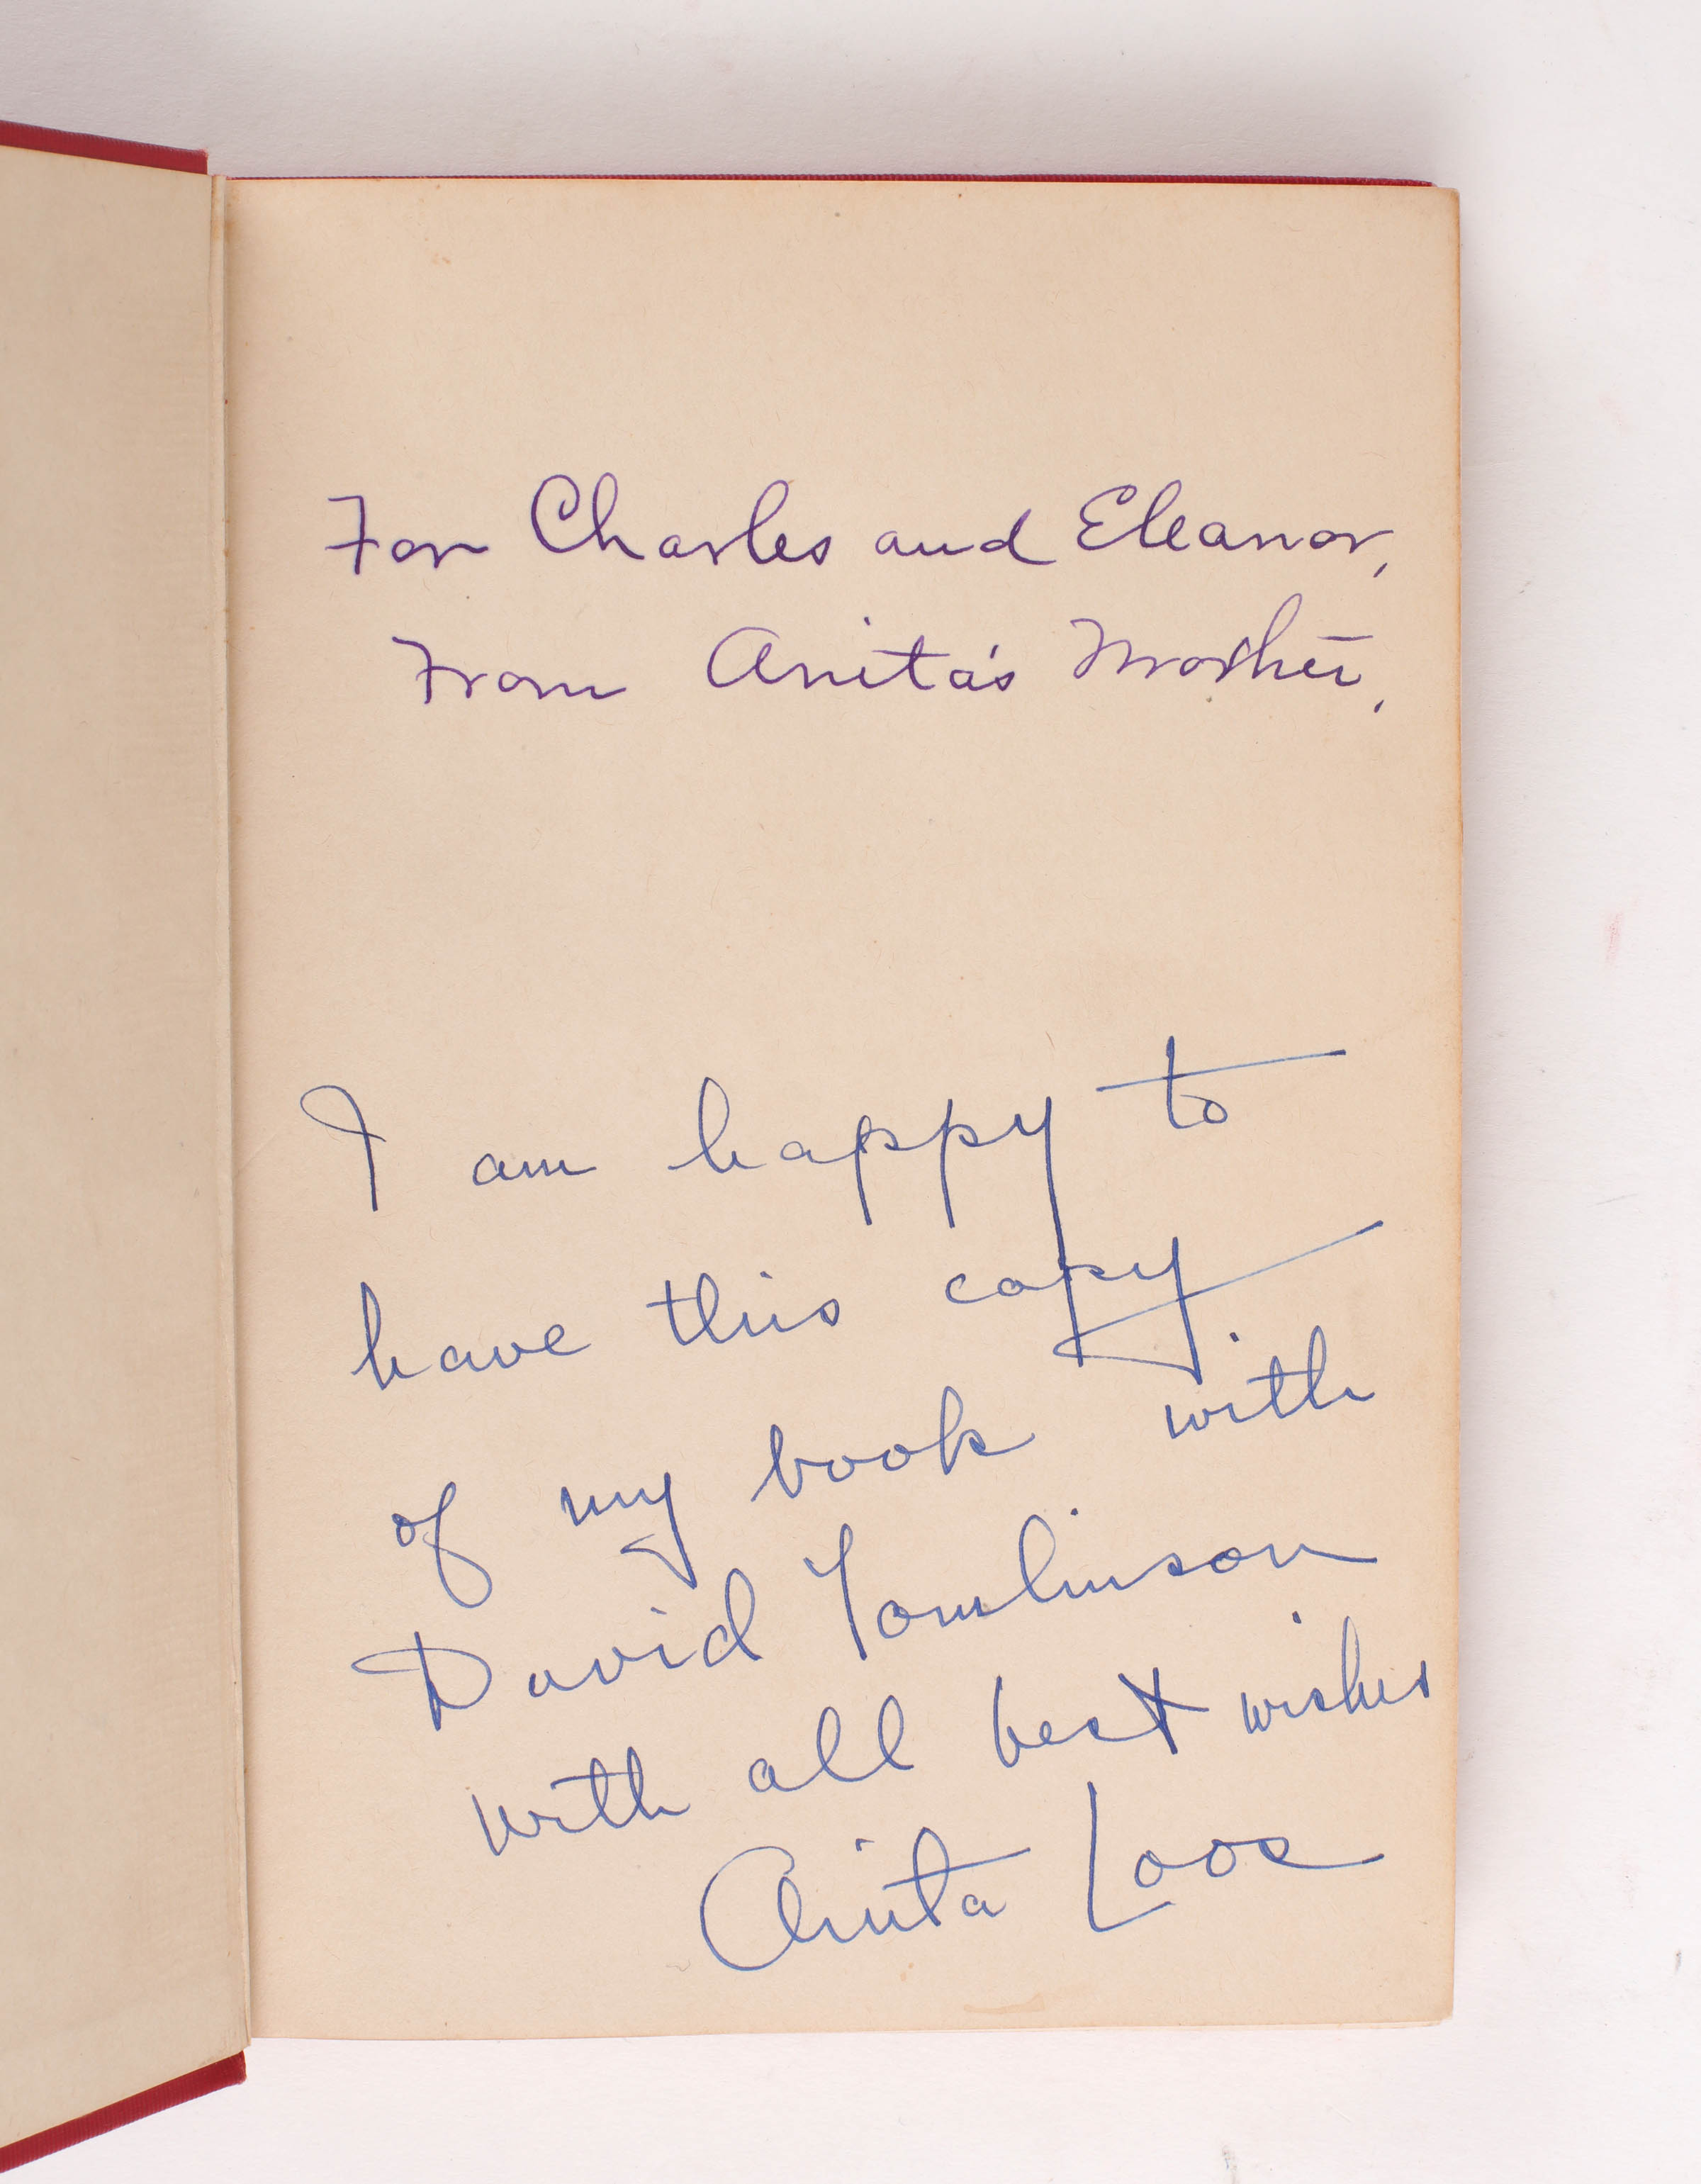 For Charles and Eleanor,
From Anita's Mother,
I am happy to
have this copy
of my book with
David Tomlinson
with all best wishes
Anita Loos